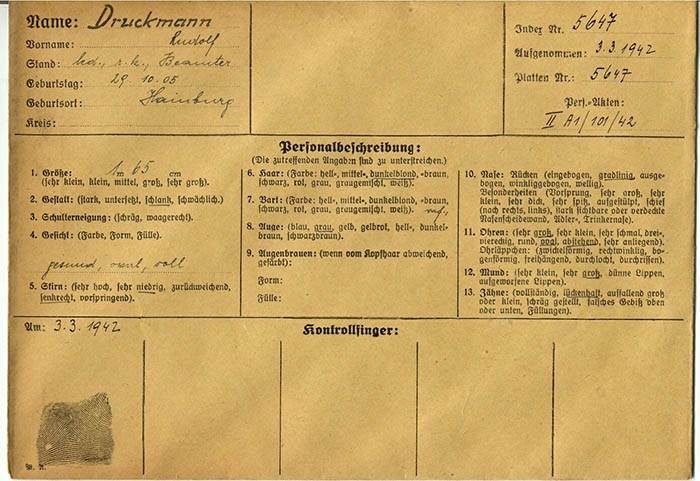 Name: Druckmann
Vorname: Rudolf
Stand: led., r. k., Beamter
Geburtstag: 29. 10. 05
Geburtsort: Hainburg
Kreis:
Index Nr. 5647
Aufgenommen: 3.3.1942
Platten Nr.: 5647
Pers.-Akten:
II A1/101/42
Personalbeschreibung:
(Die zutreffenden Angaben sind zu unterstreichen.)
1. Größe: 1 m 65 cm
(sehr klein, klein, mittel, groß, sehr groß).
2. Gestalt: (stark, untersetzt, schlank, schwächlich).
3. Schulterneigung: (schräg, waagerecht).
4. Gesicht: (Farbe, Form, Fülle).
gesund, oval, voll
5. Stirn: (sehr hoch, sehr niedrig, zurückweichend,
senkrecht, vorspringend).
6. Haar: (Farbe: hell-, mittel-, dunkelblond, -braun,
schwarz, rot, grau, graugemischt, weiß).
7. Bart: (Farbe: hell-, mittel-, dunkelblond, -braun,
schwarz, rot, grau, graugemischt, weiß).
8. Auge: (blau, grau, gelb, gelbrot, hell-, dunkel-
braun, schwarzbraun).
9. Augenbrauen: (wenn vom Kopfhaar abweichend,
gefärbt):
Form:
Fülle:
10. Nase: Rücken (eingebogen, gradlinig, ausge-
bogen, winkliggebogen, wellig).
Besonderheiten (Vorsprung, sehr groß, sehr
klein, sehr dick, sehr spitz, aufgestülpt, schief
(nach rechts, links), stark sichtbare oder verdeckte
Nasenscheidewand, Adler-, Trinkernase).
11. Ohren: (sehr groß, sehr klein, sehr schmal, drei-,
viereckig, rund, oval, abstehend, sehr anliegend).
Ohrläppchen: (zwickelförmig, rechtwinklig, bo-
genförmig, freihängend, durchlocht, durchrissen).
12. Mund: (sehr klein, sehr groß, dünne Lippen,
aufgeworfene Lippen).
13. Zähne: (vollständig, lückenhaft, auffallend groß
oder klein, schräg gestellt, falsches Gebiß oben
oder unten, Füllungen).
Am: 3.3.1942
Kontrollfinger: